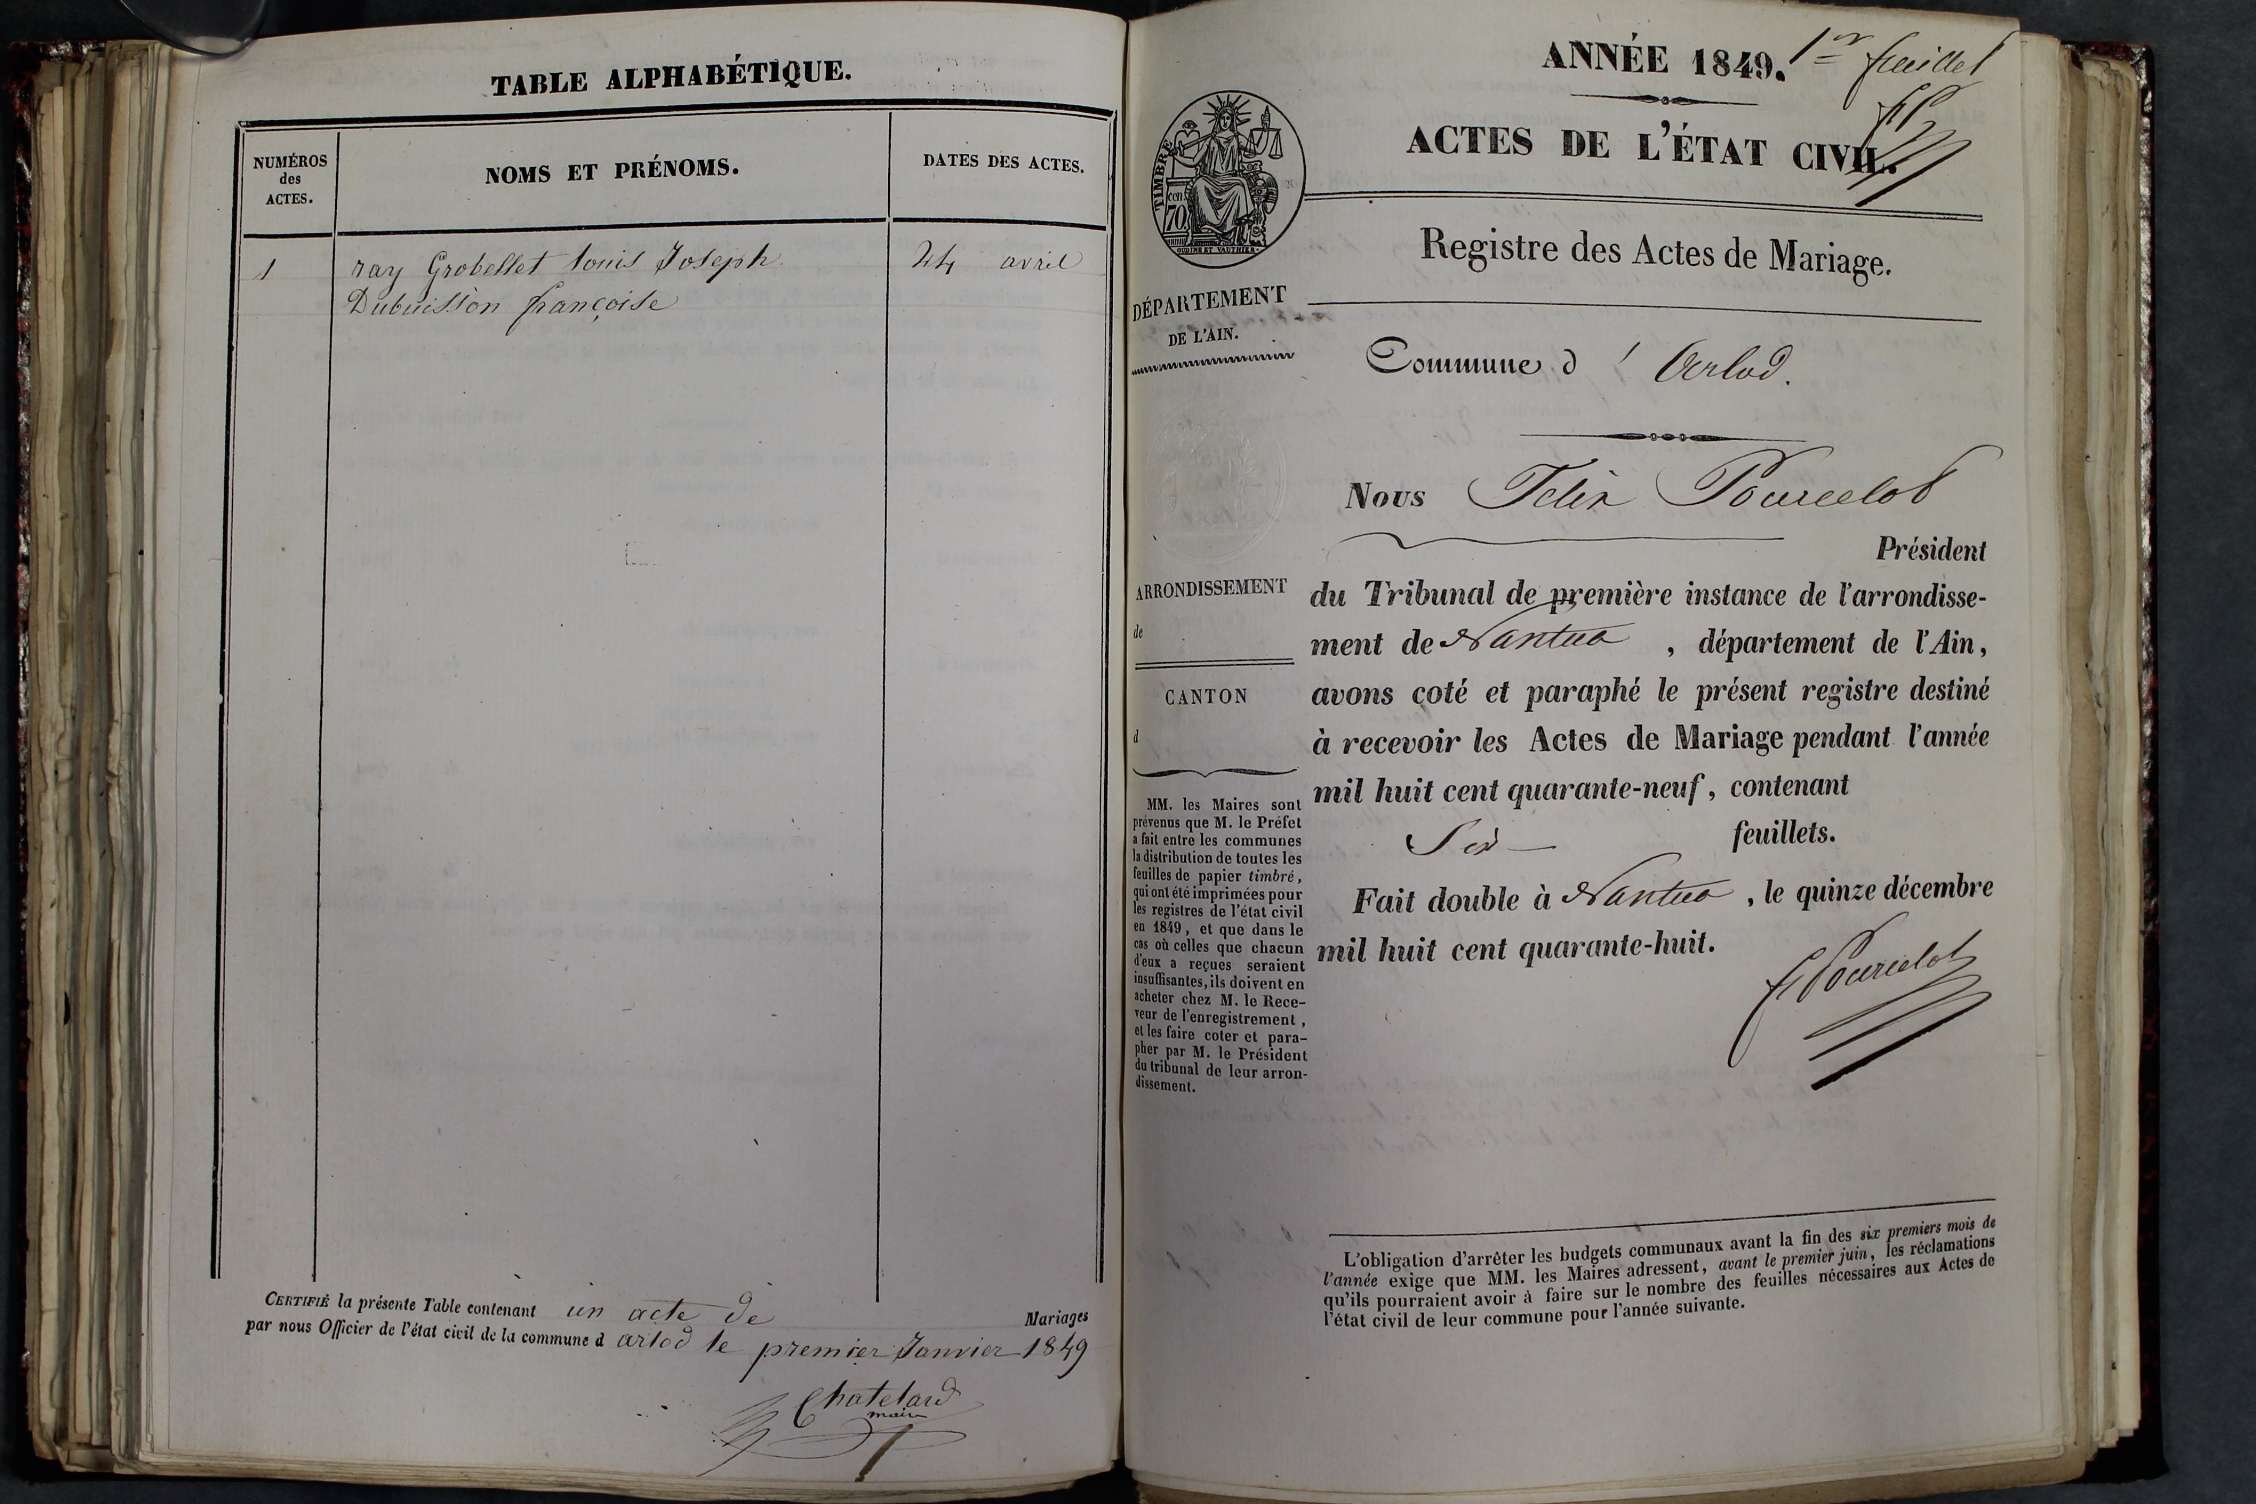 TABLE ALPHABÉTIQUE.
NUMÉROS
des
ACTES.
NOMS ET PRÉNOMS.
DATES DES ACTES.
1 ray Grobellet louis Joseph 24 avril
Dubuisson françoise
CERTIFIÉ la présente Table contenant un acte de Mariages
par nous Officier de l'état civil de la commune d arlod le premier Janvier 1849
Chatelard
maire
ANNÉE 1849. 1er feuillet
ACTES DE L'ÉTAT CIVIL.
TIMBRE
70
OUDINE ET VAUTHIER
Registre des Actes de Mariage.
DÉPARTEMENT
DE L'AIN.
Commune d' Arlod.
Nous Felix Pourcelot
Président
ARRONDISSEMENT
de
CANTON
d
du Tribunal de première instance de l'arrondisse-
ment de Nantua, département de l'Ain,
avons coté et paraphé le présent registre destiné
à recevoir les Actes de Mariage pendant l'année
mil huit cent quarante-neuf, contenant
Six feuillets.
Fait double à Nantua, le quinze décembre
mil huit cent quarante-huit.
F Pourcelot
MM. les Maires sont
prévenus que M. le Préfet
a fait entre les communes
la distribution de toutes les
feuilles de papier timbré,
qui ont été imprimées pour
les registres de l'état civil
en 1849, et que dans le
cas où celles que chacun
d'eux a reçues seraient
insuffisantes, ils doivent en
acheter chez M. le Rece-
veur de l'enregistrement,
et les faire coter et para-
pher par M. le Président
du tribunal de leur arron-
dissement.
L'obligation d'arrêter les budgets communaux avant la fin des six premiers mois de
l'année exige que MM. les Maires adressent, avant le premier juin, les réclamations
qu'ils pourraient avoir à faire sur le nombre des feuilles nécessaires aux Actes de
l'état civil de leur commune pour l'année suivante.